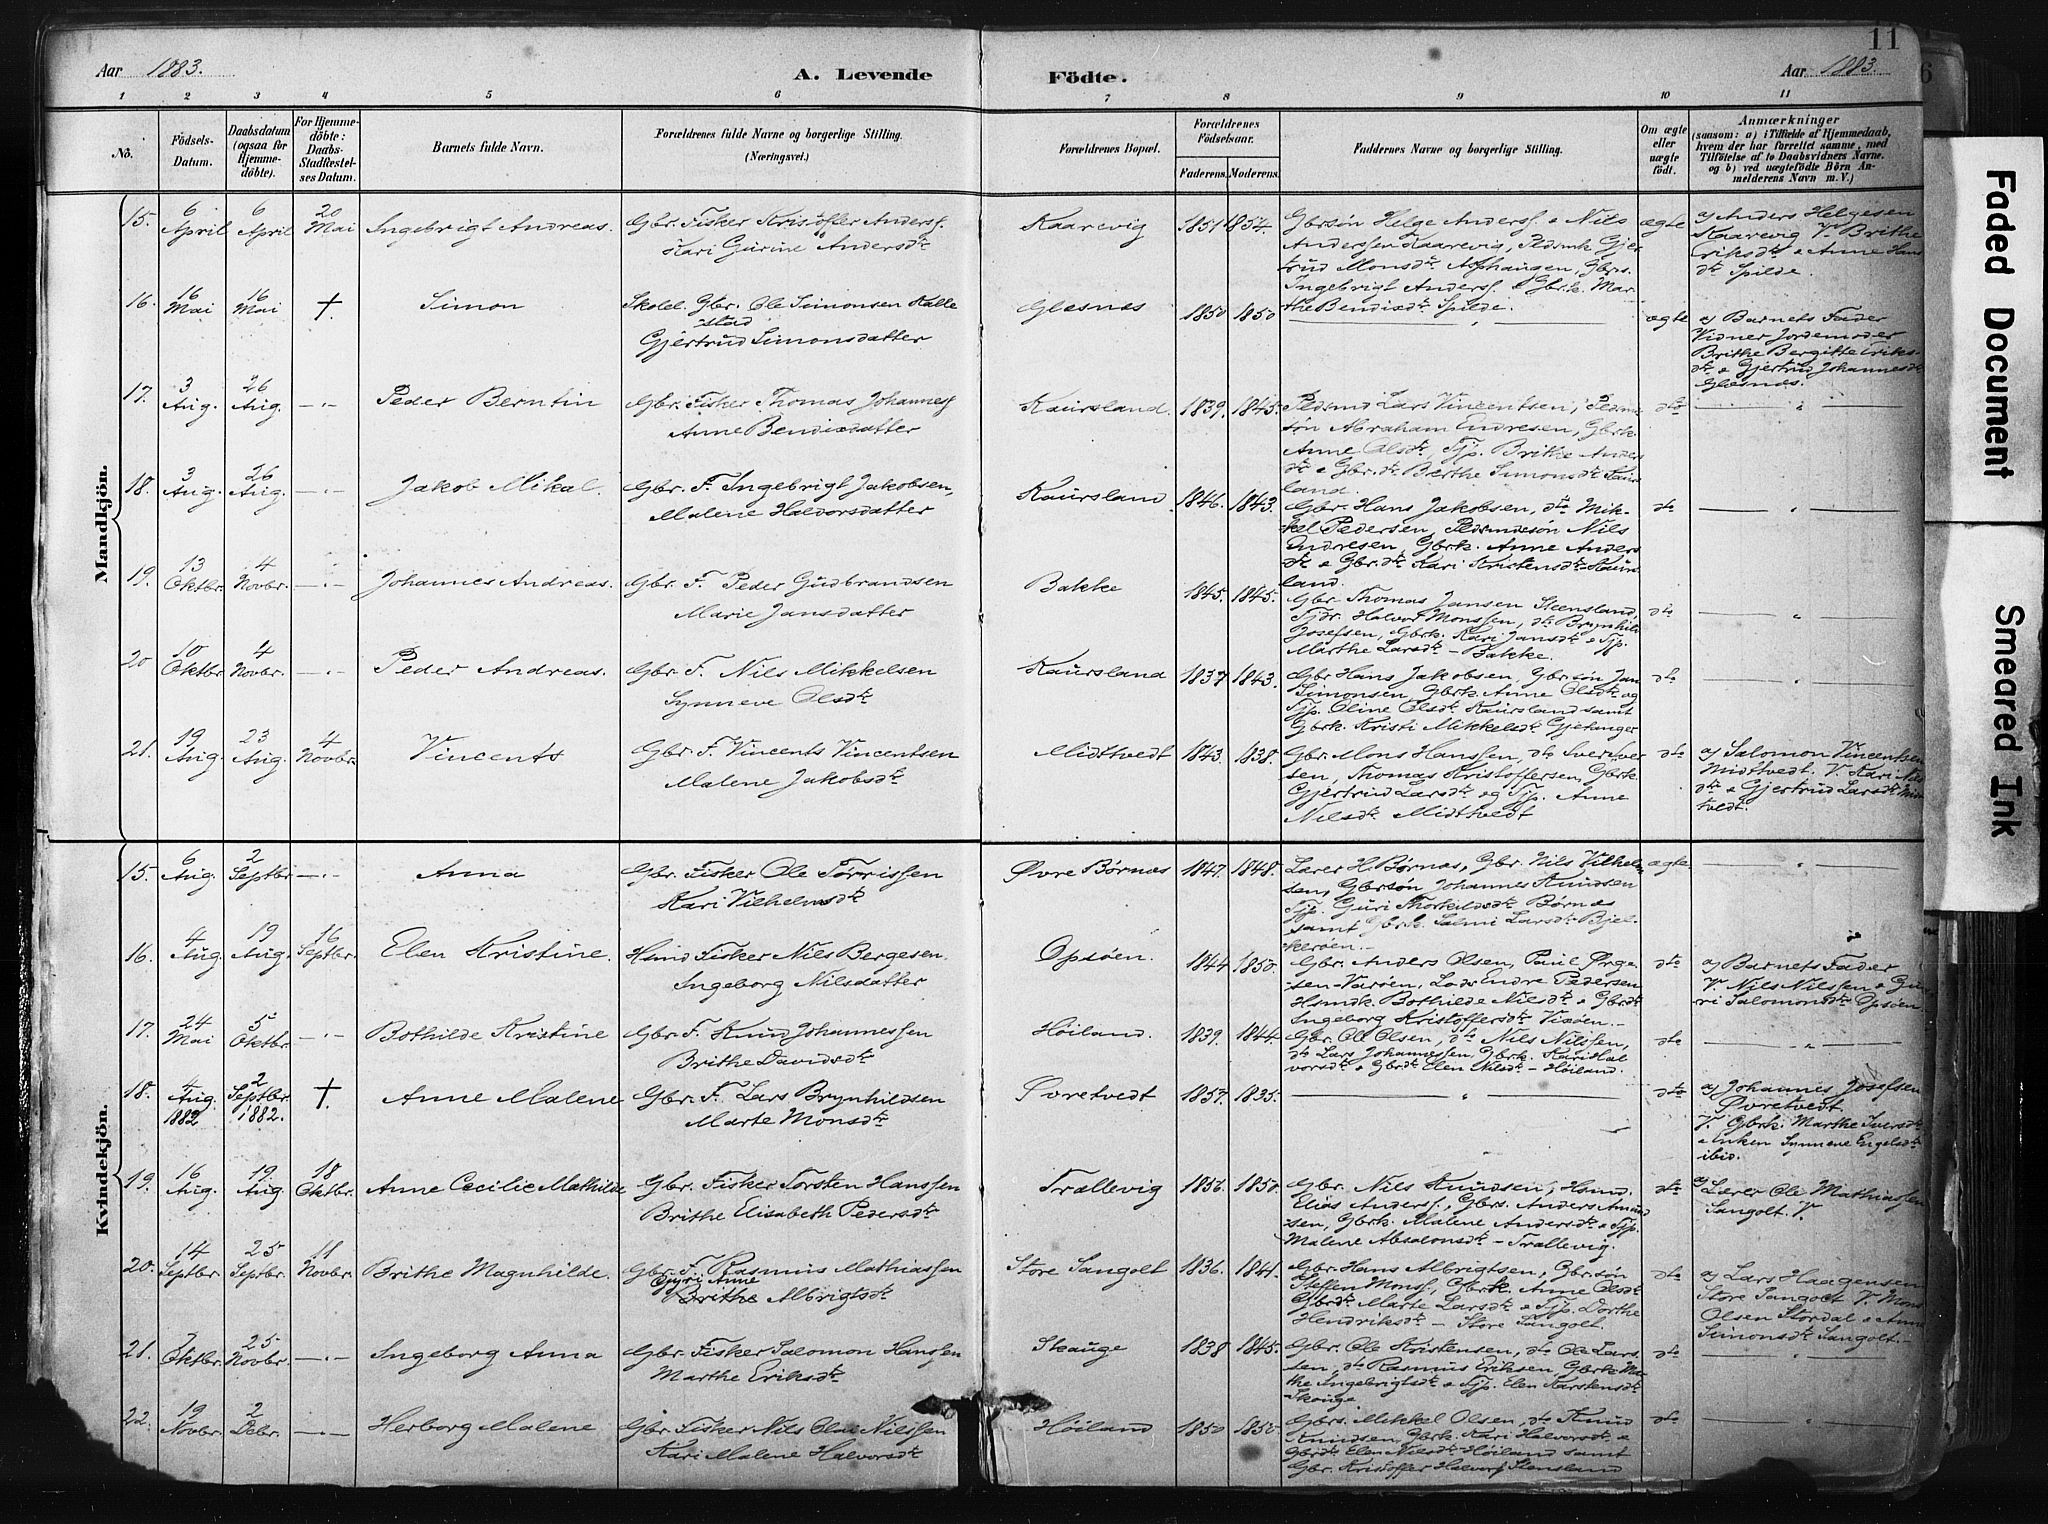 11
6
Aar 1883.
A. Levende Födte.
Aar 1883.
1 2 3 4 5 6 7 8 9 10 11
No.
Födsels-Datum.
Daabsdatum (ogsaa for Hjemme-döbte).
For Hjemme-döbte: Daabs-Stadfæstel-ses Datum.
Barnets fulde Navn.
Forældrenes fulde Navne og borgerlige Stilling.
(Næringsvei.)
Forældrenes Bopæl.
Forældrenes Födselsaar.
Faderens. Moderens.
Faddernes Navne og borgerlige Stilling.
Om ægte eller uægte födt.
Anmærkninger
(saasom: a) i Tilfælde af Hjemmedaab,
hvem der har forrettet samme, med
Tilföielse af to Daabsvidners Navne.
og b) ved uægtefödte Börn An-
melderens Navn m. V.)
Mandkjön.
15. 6 April 6 April 20 Mai Ingebrigt Andreas. Gbr. Fisker Kristoffer Andersf.
Kari Gurine Andersdtr
Kaarevig 1851 1854. Gbrsøn Helge Andersf. & Nils
Anderssen Kaarevig, Pldsmk Gjer
trud Monsdtr Asphaugen, Gbrs.
Ingebrigt Andersf. & Gbrk. Mar-
the Bendixdtr Spilde.
ægte a) Anders Helgesen
Kaarevig V. Brithe
Eriksdtr & Anne Hans
dtr Spilde.
16. 16 Mai 16 Mai † Simon Skolel. Gbr. Ole Simonsen Kalle
stad
Gjertrud Simonsdatter
Glesnæs 1850 1850 — " —
ægte a) Barnets Fader
Vidner Jordemoder
Brithe Bergitte Eriks-
dtr & Gjertrud Johannesdtr
Glesnæs.
17. 3 Aug. 26 Aug. -"- Peder Berntin Gbr. Fisker Thomas Johannesf
Anne Bendixdatter
Kaursland. 1839. 1845. Pldsmd Lars Vincentsen, Pldsm
søn Abraham Endresen, Gbrk.
Anne Olsdtr, Tjp. Brithe Anders
dtr & Gbr.dtr Berthe Simonsdtr Kaurs
land.
dto — " —
18. 3 Aug. 26 Aug. -"- Jakob Mikal. Gbr. F. Ingebrigt Jakobsen,
Malene Halvorsdatter
Kaursland 1846. 1843. Gbr. Hans Jakobsen, dto Mik-
kel Pedersen, Pldsmdssøn Nils
Endresen, Gbrk. Anne Anders
dtr & Gbr.dtr Kari Kristensdtr Kaurs
land.
dto — " —
19. 13 Oktbr. 4 Novbr. -"- Johannes Andreas. Gbr. F. Peder Gudbrandsen
Marie Jansdatter
Bakke 1845. 1845. Gbr. Thomas Jansen Steensland,
Tjdr. Halvor Monssen, dto Brynhild
Josefsen, Gbrk. Kari Jansdtr & Tjp.
Marthe Larsdtr - Bakke.
dto — " —
20 10 Oktbr. 4 Novbr. -"- Peder Andreas. Gbr. F. Nils Mikkelsen
Synneve Olsdtr
Kaursland 1837 1843. Gbr Hans Jakobsen, Gbrsøn Jan
Simonsen, Gbrk. Anne Olsdtr og
Tjp. Oline Olsdtr Kaursland samt
Gbrk. Kristi Mikkelsdtr Gjetanger
dto — " —
21. 19 Aug. 23 Aug. 4 Novbr. Vincents Gbr. F. Vincents Vincentsen
Malene Jakobsdtr
Midttvedt 1843. 1838. Gbr. Mons Hanssen, dto Sver Iver
sen, Thomas Kristoffersen, Gbrk.
Gjertrud Larsdtr og Tjp. Anne
Nilsdtr Midttvedt
dto a) Salomon Vincentsen
Midttvedt. V. Kari Nils
dtr & Gjertrud Larsdtr Midt
tvedt.
Kvindekjön.
15. 6 Aug. 2 Septbr -"- Anna Gbr. Fisker Ole Torrissen
Kari Vilhelmsdtr
Øvre Børnæs 1847. 1848. Lærer H. Børnæs, Gbr. Nils Vilhelm
sen, Gbrsøn Johannes Knudsen
Tjp. Guri Thorkildsdtr Børnæs
samt Gbrk. Salmi Larsdtr Bjel-
kerøen.-
ægte. — " —
16. 4 Aug 19 Aug. 16 Septbr. Elen Kristine. Hsmd Fisker Nils Bergesen.
Ingeborg Nilsdatter
Opsøen. 1844 1850. Gbr. Anders Olsen, Paul Ørge-
sen-Varøen, Lods Endre Pedersen
Hsmdk. Bothilde Nilsdtr & Gbrdtr
Ingeborg Kristoffersdtr Vixøen.-
dto a) Barnets Fader
V. Nils Nilssen & Gu
ri Salomonsdtr Opsøen
17. 24 Mai 5 Oktbr. -"- Bothilde Kristine Gbr. F. Knud Johannessen
Brithe Davidsdtr
Høiland. 1839. 1844. Gbr. Ole Olsen, dto Nils Nilssen,
dto Lars Johannessen, Gbrk. Kari Hal
vorsdtr & Gbrdtr Elen Nilsdtr - Høiland.
dto — " —
18. 4 Aug. 1882 2 Septbr. 1882. † Anne Malene Gbr. F. Lars Brynhildsen
Marte Monsdtr
Øvretvedt 1857. 1835. — " —
dto a) Johannes Josefsen
Øvretvedt
V. Gbrk. Marthe Iversdtr
& Enken Synneve Engelsdtr
ibid.
19. 16 Aug. 19 Aug. 18 Oktbr. Anne Cecilie Mathilde Gbr. Fisker Torsten Hanssen
Brithe Elisabeth Pedersdtr
Trællevig 1856. 1850. Gbr. Nils Knudsen, Hsmd.
Elias Andersf., Gbrs. Anders Amund
sen, Gbrk. Malene Andersdtr & Tjp.
Malene Absalonsdtr - Trællevig.
dto a) Lærer Ole Mathiassen
Sangolt. V.
20. 14 Septbr. 25 Septbr. 11 Novbr. Brithe Magnhilde. Gbr. F. Rasmus Mathiassen
Guri Anne
Brithe Albrigtsdtr
Store Sangolt 1836. 1841. Gbr. Hans Albrigtsen, Gbrsøn
Steffen Monsf., Gbrk. Anne Olsdtr
Gbrdtr Marte Larsdtr & Tjp. Dorthe
Hendriksdtr - Store Sangolt.
dto a) Lars Haagensen
Store Sangolt V. Mons
Olsen Stordal & Anne
Simonsdtr Sangolt.-
21. 7 Oktbr. 25 Novbr. -"- Ingeborg Anna Gbr. Fisker Salomon Hanssen
Marthe Eriksdtr
Skauge 1838 1845. Gbr. Ole Kristensen, dto Ole Lars-
sen, dto Rasmus Eriksen, Gbrk Mar
the Ingebrigtsdtr & Tjp. Elen Karstensdtr
Skauge
dto — " —
22. 19 Novbr. 2 Debr. -"- Herborg Malene Gbr. Fisker Nils Olai Nilssen
Kari Malene Halvorsdtr
Høiland 1850 1850. Gbrs. Mikkel Olsen, dto Knud
Knudsen, Gbrk. Kari Halvorsdtr &
Gbrdtr Elen Nilsdtr Høiland samt
Gbr. Kristoffer Halvorf Stensland
dto — " —
Faded Document
Smeared Ink